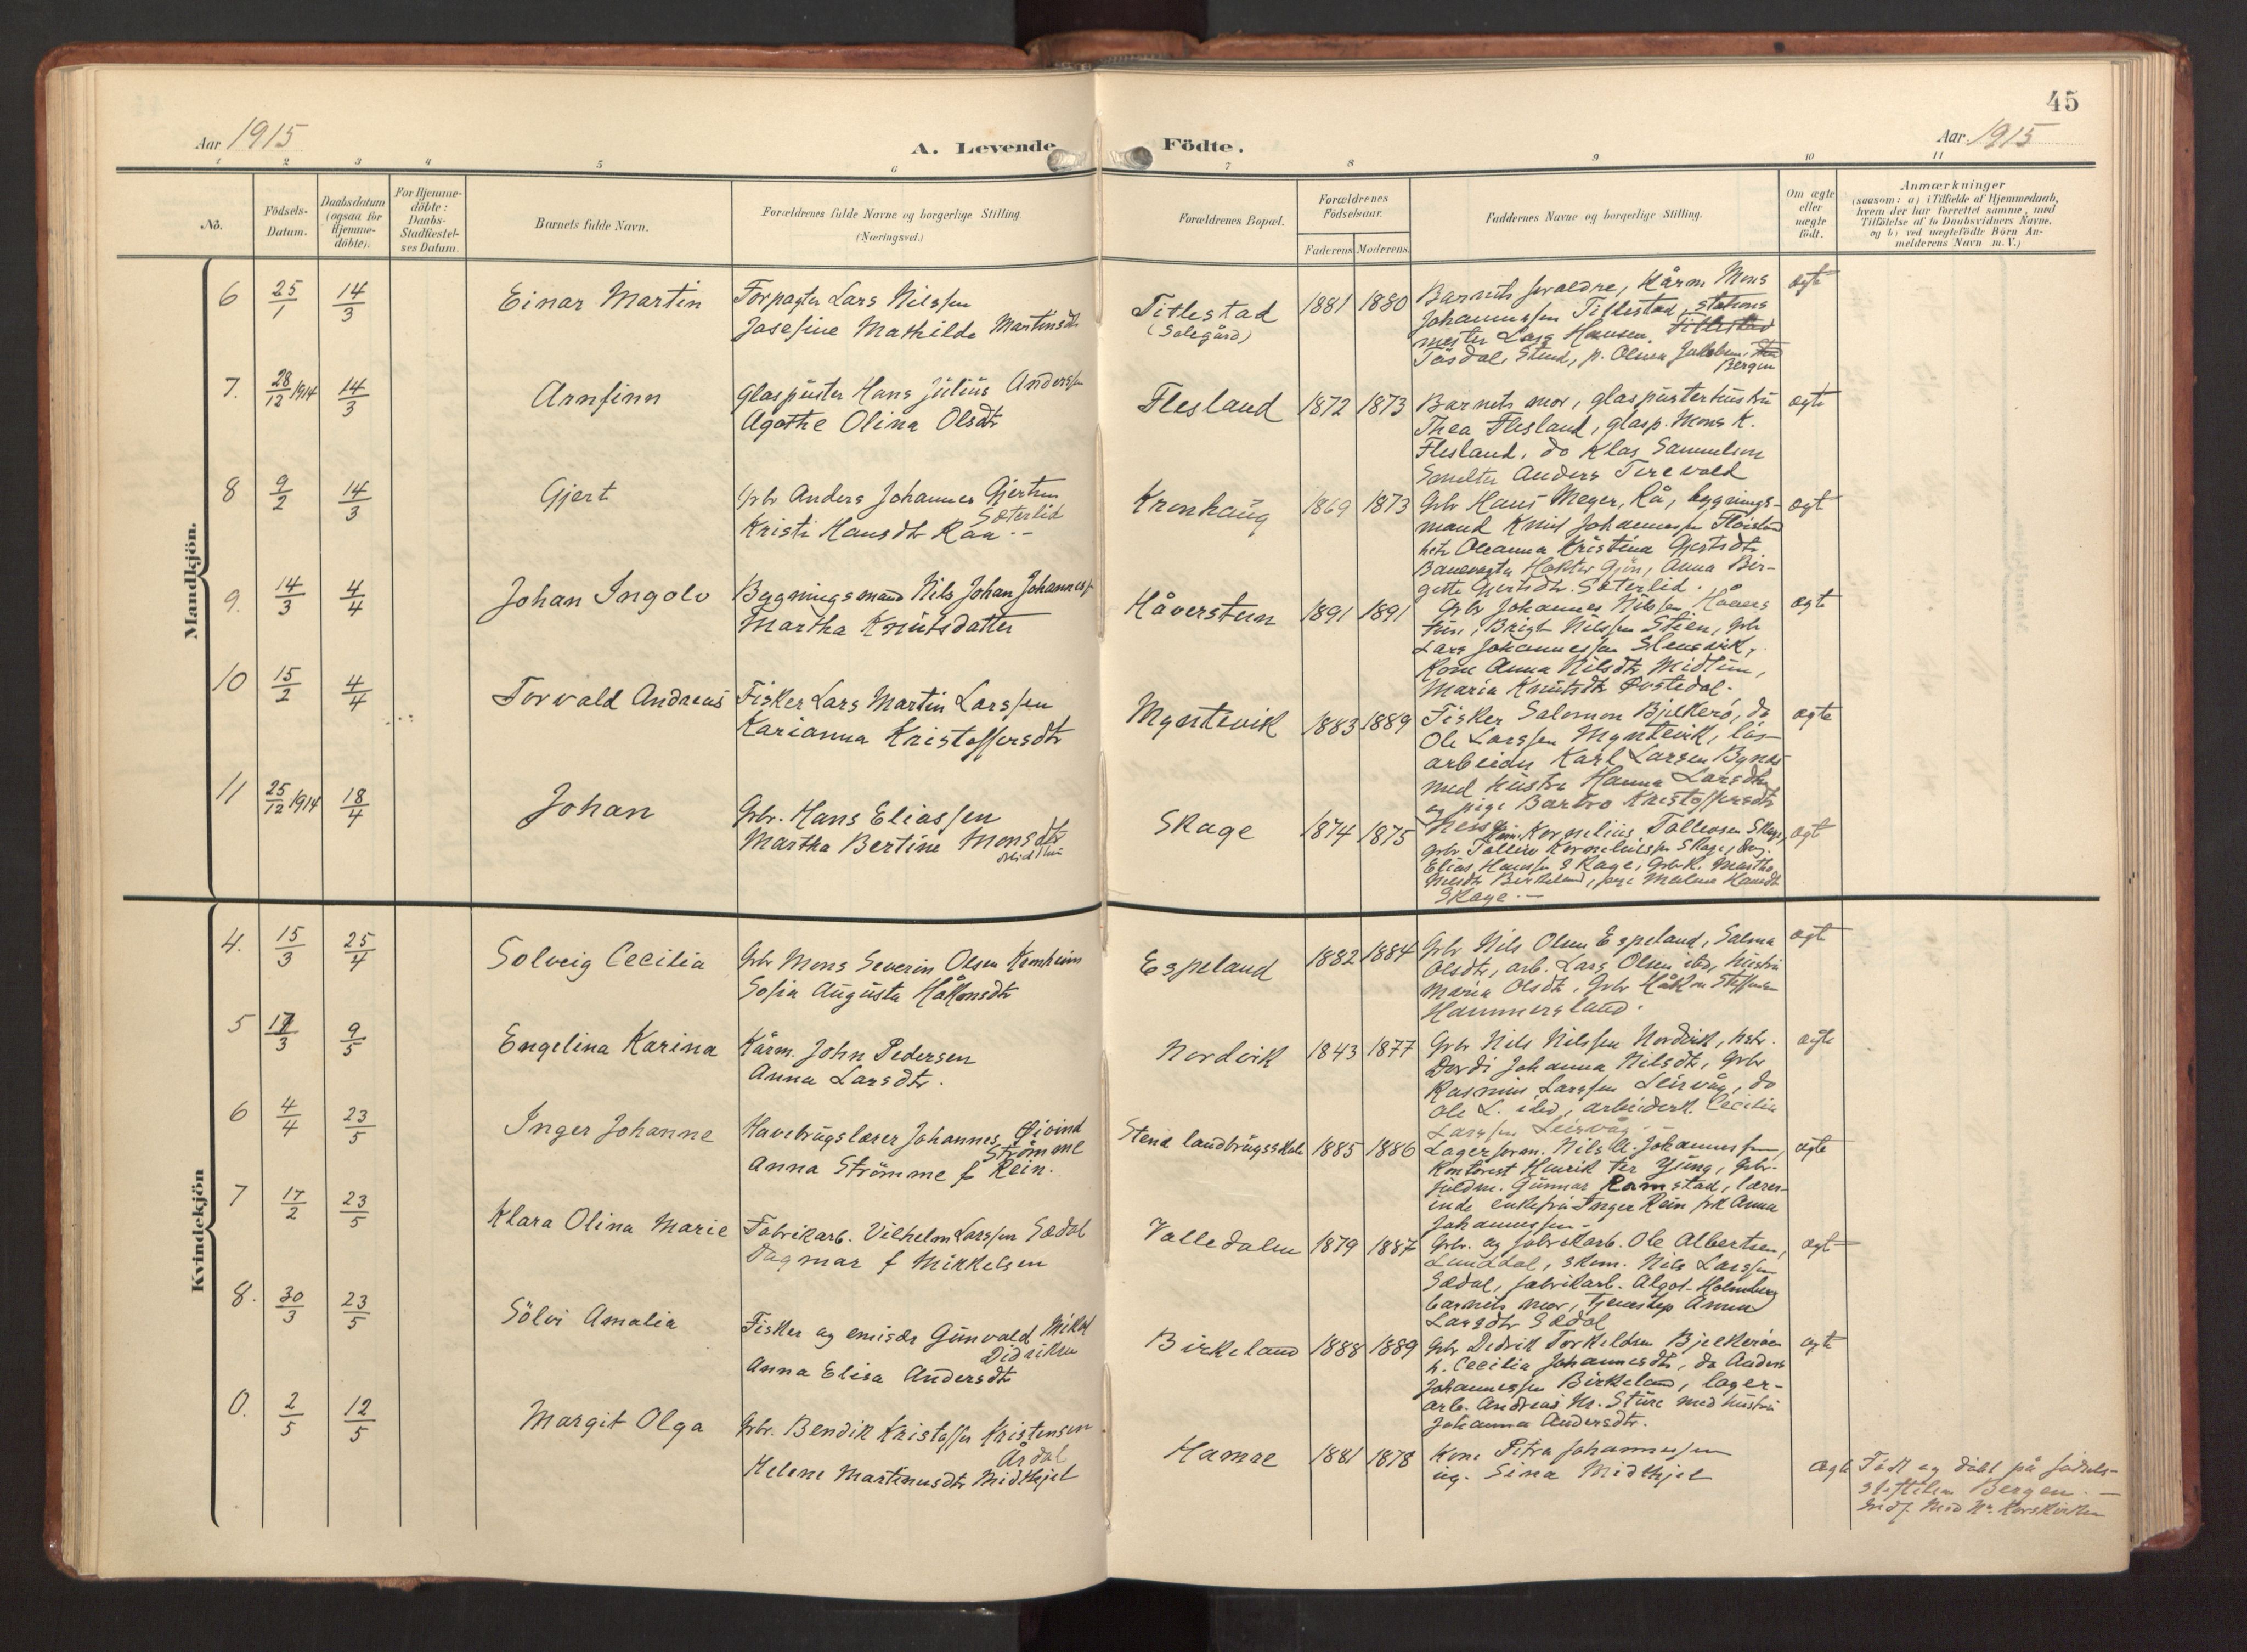 45
Aar 1915
A. Levende
Födte.
Aar 1915
1 2 3 4 5 6 7 8 9 10 11
No.
Födsels-
Datum.
Daabsdatum
(ogsaa for
Hjemme-
döbte).
For Hjemme-
döbte:
Daabs-
Stadfæstel-
ses Datum.
Barnets fulde Navn.
Forældrenes fulde Navne og borgerlige Stilling.
(Næringsvei.)
Forældrenes Bopæl.
Forældrenes
Födselsaar.
Faderens Moderens
Faddernes Navne og borgerlige Stilling.
Om ægte
eller
uægte
födt.
Anmærkninger
(saasom: a) i Tilfælde af Hjemmedaab,
hvem der har forrettet samme, med
Tilföielse af to Daabsvidners Navne,
og b) ved uægtefödte Börn An-
melderens Navn m. V.)
Mandkjön.
6 25/1 14/3 Einar Martin
Forpagter Lars Nilssen
Josefine Mathilde Martinsdtr
Titlestad
(Solegård)
1881 1880
Barnets foreldre, Kårm. Mons
Johannessen Titlestad, stations
mester Lars Hansen Titlestad
Stend, p. Olina Jakobsen
Bergen
ægte
7. 28/12 1914 14/3 Arnfinn
Glaspuster Hans Julius Anderss
Agathe Olina Olsdtr
Flesland 1872 1873
Barnets mor, glaspusterhustru
Thea Flesland, glasp. Mons K.
Flesland, do Klas Samuelsen
Smelter Anders Tirevold
ægte
8 9/2 14/3 Gjert
Grbr Anders Johannes Gjertsen
Sæterlid
Kristi Hansdtr Raa
Kronhaug 1869 1873
Grbr Hans Meyer, Rå, bygnings-
mand Knut Johannessen
hstr Oleanna Kristina Gjertsdtr
Banevogter Gjön, Anna Bir-
gitte Gjertsdtr. Sæterlid.
ægt
9. 14/3 4/4 Johan Ingolv
Bygningsmand Nils Johan Johanness
Martha Knutsdatter
Håverstun 1891 1891
Grbr Johannes Nilssen Håvers
tun, Brigt Nilssen Stien, grbr
Lars Johannessen
Kone Anna Nilsdtr Midtun,
Maria Knutsdtr
ægte
10 15/2 4/4 Torvald Andreas
Fisker Lars Martin Larssen
Karianna Kristoffersdtr
Myntevik 1883 1889
Fisker Salomon Bjelkerö, do
Ole Larssen Myntevik, lös-
arbeider Karl Larsen
med hustru Hanna Larsdtr
og pige Barbro Kristoffersdtr
ægte
11 25/12 1914 18/4 Johan
Grbr. Hans Eliassen
Martha Bertine Monsdtr
Midttun
Skage 1874 1875
Kårm. Kornelius Tollevsen Skage,
grbr Tollev Kornelius Skage, ung.
Elias Hanssen Skage, Grbrk. Martha
Nilsdtr Birkeland, pige Malena Hansdt
Skage
ægt
Kvindekjön
4. 15/3 25/4 Solveig Cecilia
Grbr Mons Severin Olsen
Sofia Augusta Håkonsdtr
Espeland 1882 1884
Grbr Nils Olsen Espeland, Salma
Olsdtr, arb. Lars Olsen ibd, hustru
Maria Olsdt, Grbr Håkon Steffensen
Hammersland.
ægt
5 17/3 9/5 Engelina Karina
Kårm. John Pedersen
Anna Larsdtr.
Nordvik 1843 1877
Grbr Nils Nilssen Nordvik, hstr.
Dordi Johanna Nilsdt, Grbr
Rasmus Larssen Leirvåg, do
Ole L. ibd, arbeiderk. Cecilia
Larssen Leirvåg
ægte
6 4/4 23/5 Inger Johanne
Havebrugslærer Johannes Øivind
Strömme
Anna Strömme f Rein.
Stend landbrugsskole 1885 1886
Lagerform. Nils M. Johannessen,
Kontorist Henrik Ljung, Grbr-
fuldm. Gunnar Ramstad, lærer-
inde enkefru Inger Rein frk Anna
Johannessen
ægte
7 17/2 23/5 Klara Olina Marie
Fabrikarb. Vilhelm Larssen Sædal
Dagmar f Mikkelsen
Valledalen 1879 1887
Grbr. og fabrikarb. Ole Albertsen,
Skom. Nils Larssen
Sædal, fabrikarb. Algot Holmberg
barnets mor, tjenestep Anna
Larsdtr Sædal
ægt
8. 30/3 23/5 Sölvi Amalia
Fisker og emisær Gunvald Mikal
Didriksen
Anna Elisa Andersdtr
Birkeland 1888 1889
Grbr Didrik Torkildsen Bjelkeröen
h. Cecilia Johannesdtr, do Anders
Johannessen Birkeland, lager-
arb. Andreas Sture med hustru
Johanna Andersdtr.
ægte
0. 2/5 12/5 Margit Olga
Grbr. Bendik Kristoffer Kristensen
Årdal
Helene Martinusdtr Midthjel
Hamre 1881 1878
Kone Petra Johannessen
ug. Sina Midthjel
Ægte
Födt og döbt på födsels-
stiftelsen Bergen.
Indf. med Nr. Korskirken